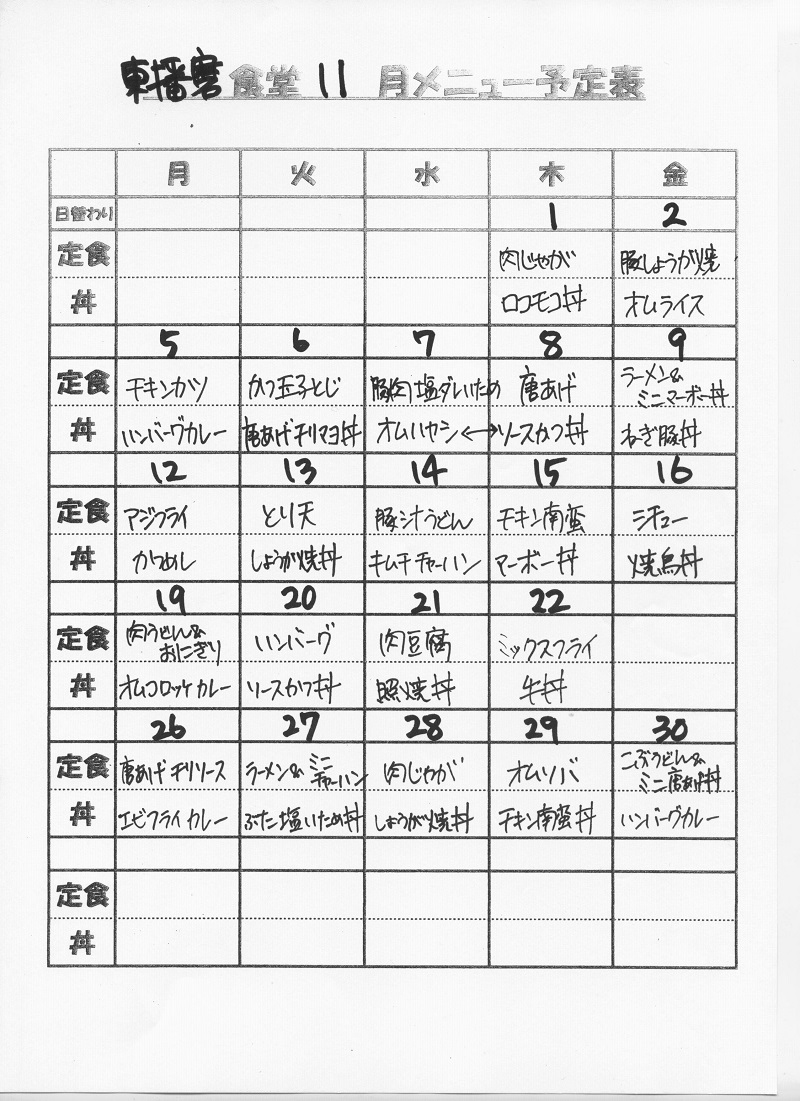 東播磨食堂 11 月メニュー予定表
月 火 水 木 金
日替わり 1 2
定食 肉じゃが 豚しょうが焼
丼 ロコモコ丼 オムライス
5 6 7 8 9
定食 チキンカツ かつ玉子とじ 豚肉塩ダレいため 唐あげ ラーメン&
ミニマーボー丼
丼 ハンバーグカレー 唐あげチリマヨ丼 オムハヤシ ↔ ソースかつ丼 ねぎ豚丼
12 13 14 15 16
定食 アジフライ とり天 豚汁うどん チキン南蛮 シチュー
丼 かつめし しょうが焼丼 キムチチャーハン マーボー丼 焼鳥丼
19 20 21 22
定食 肉うどん& ハンバーグ 肉豆腐 ミックスフライ
おにぎり
丼 オムコロッケカレー ソースかつ丼 照焼丼 牛丼
26 27 28 29 30
定食 唐あげチリソース ラーメン&ミニ 肉じゃが オムソバ こぶうどん&
チャーハン ミニ唐あげ丼
丼 エビフライカレー ぶた塩いため丼 しょうが焼丼 チキン南蛮丼 ハンバーグカレー
定食
丼